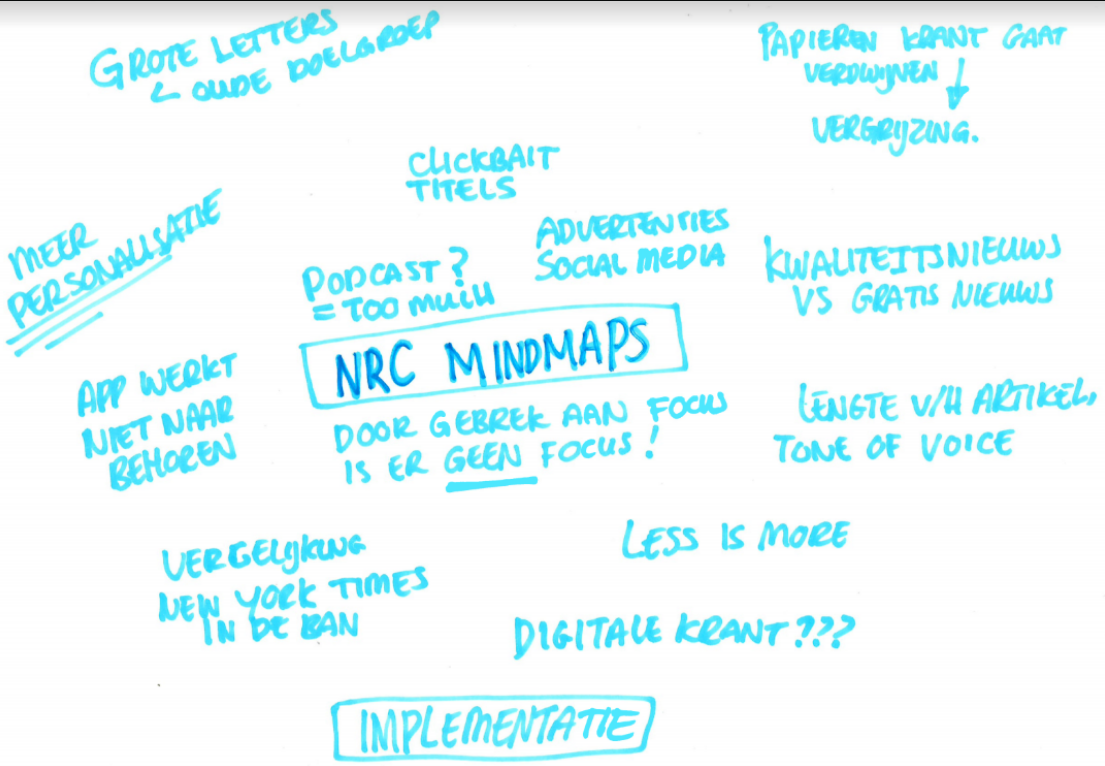 GROTE LETTERS
OUDE DOELGROEP
PAPIEREN KRANT GAAT
VERDWIJNEN
VERGRIJZING.
CLICKBAIT
TITELS
MEER
PERSONALISATIE
PODCAST?
= TOO MUCH
ADVERTENTIES
SOCIAL MEDIA
KWALITEITSNIEUWS
VS GRATIS NIEUWS
NRC MINDMAPS
APP WERKT
NIET NAAR
BEHOREN
DOOR GEBREK AAN FOCUS
IS ER GEEN FOCUS!
LENGTE V/H ARTIKEL,
TONE OF VOICE
VERGELIJKING
NEW YORK TIMES
IN DE BAN
LESS IS MORE
DIGITALE KRANT???
IMPLEMENTATIE